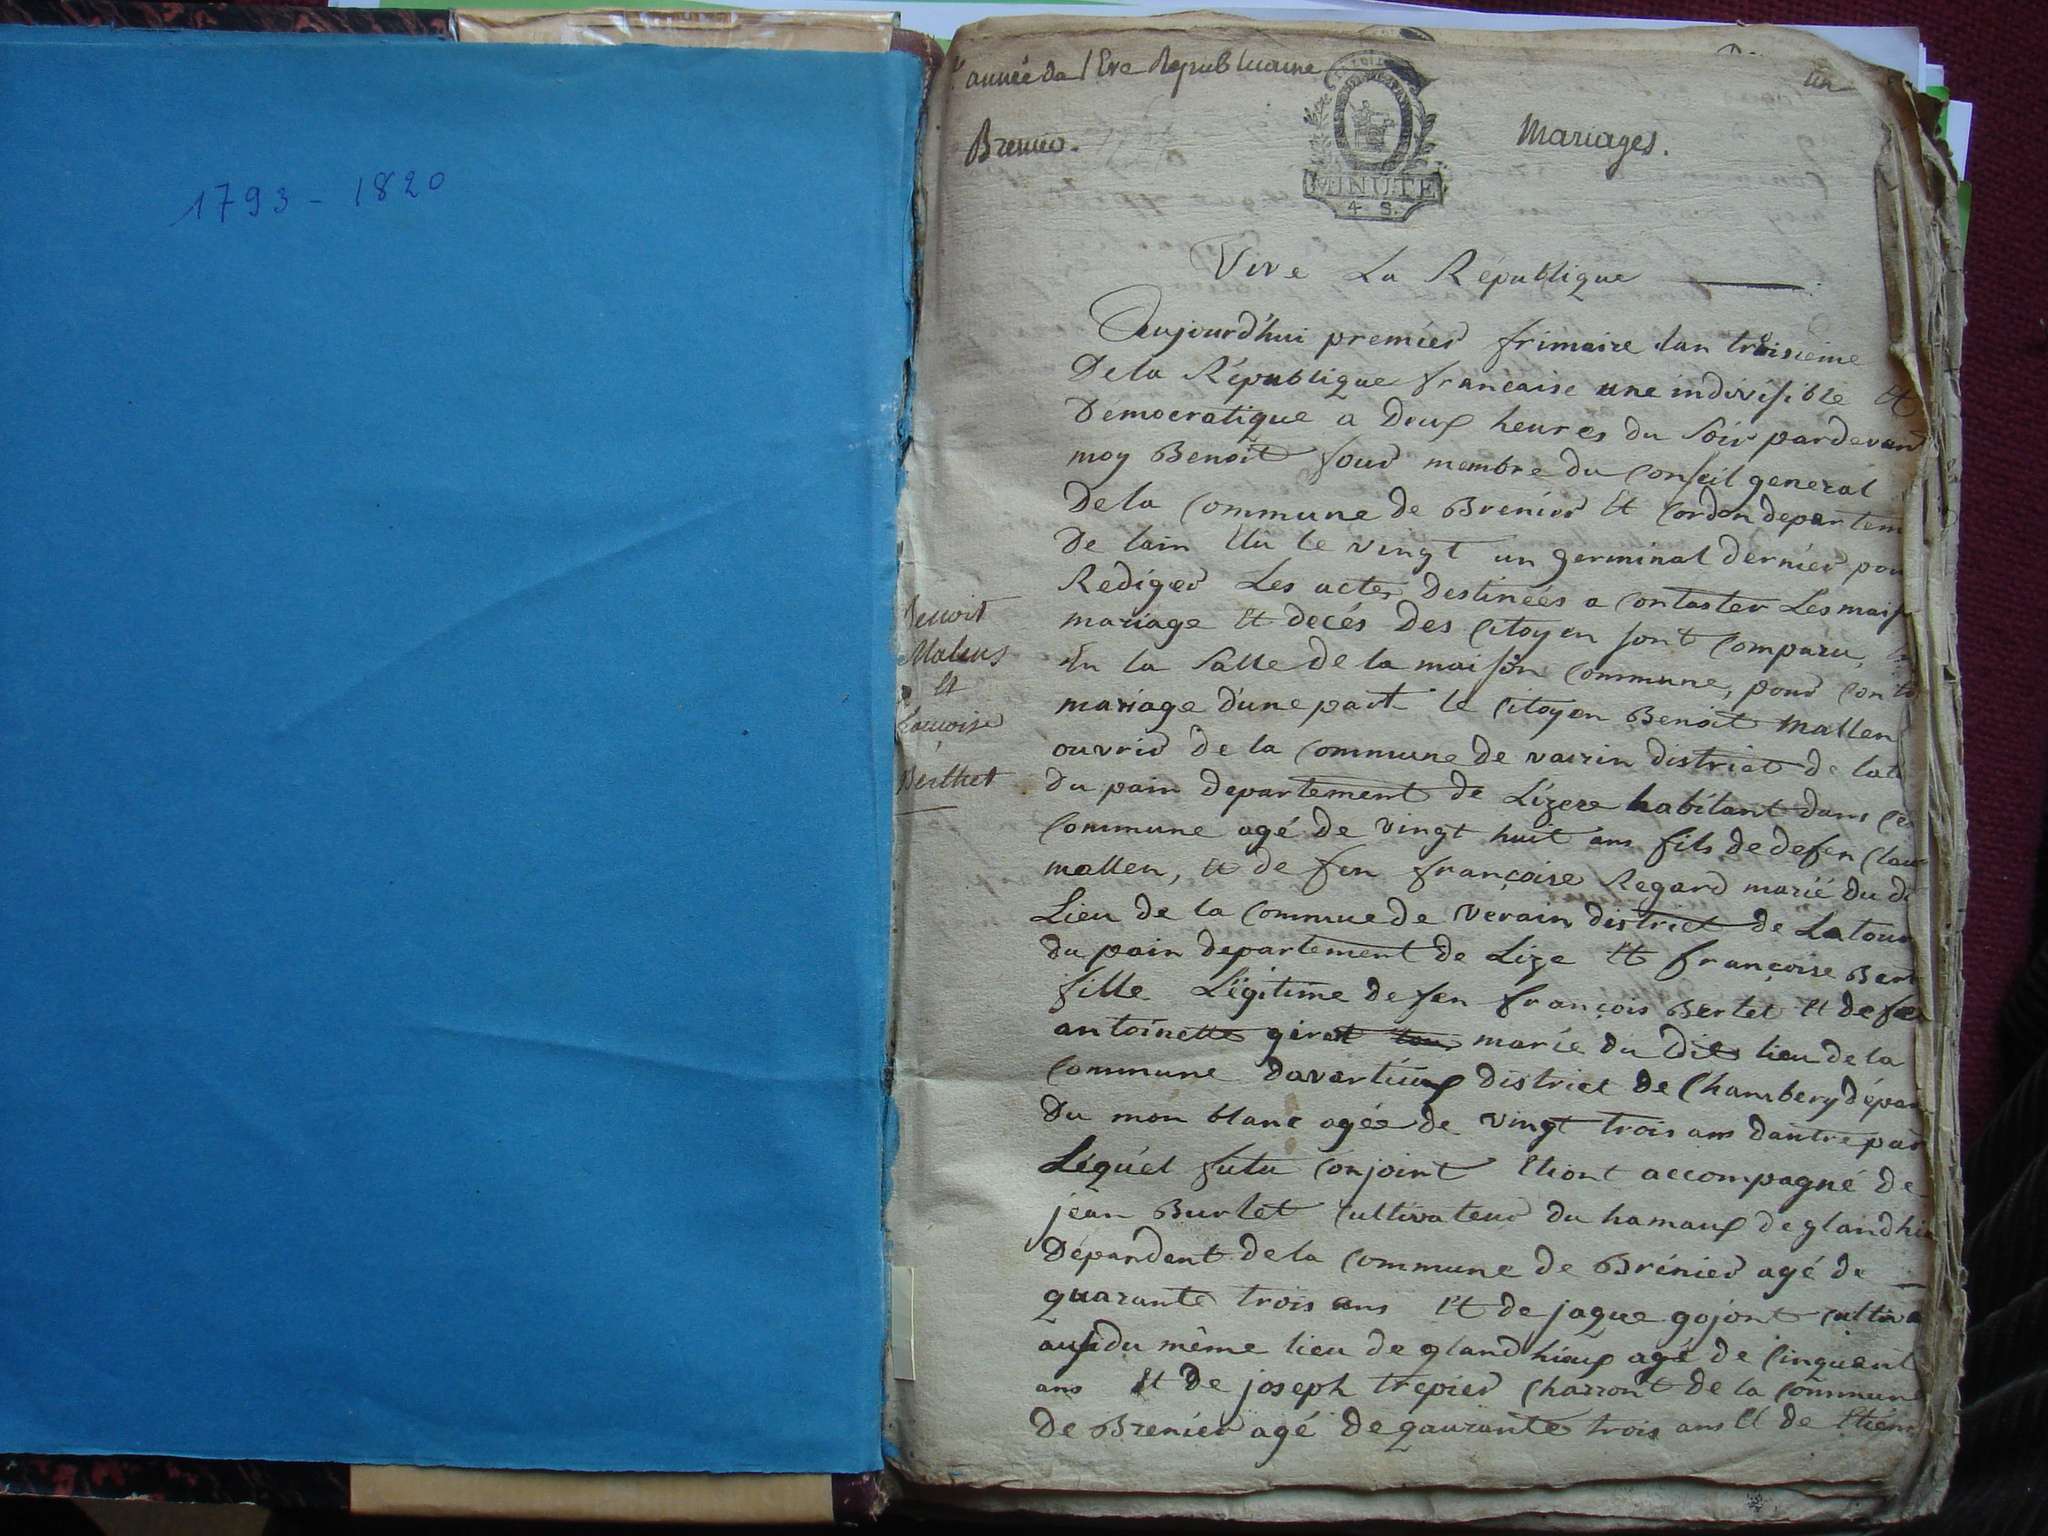 1793 - 1820
année de l'Ere Republicaine
un
Brenier.
Mariages.
MINUTE
4 S.
Vive La République
Aujourd'hui premier frimaire lan troisieme
De la République francaise une indivisible Et
Démocratique a Deux heures du Soir pardevan
moy Benoit four membre du Conseil general
De la Commune de Brenier Et Cordon departem
De lain Elu le vingt un germinal dernier pou
Rediger Les actes Destinées a Contaster Les
mariage Et decés Des Citoyen sont Comparu,
En la Salle de la maison Commune, pour
mariage d'une part le Citoyen Benoit Mallen
ouvrir de la Commune de vairin district de
Du pain departement de Lizere habitant dans
Commune agé de vingt huit ans fils de defeu
mallen, Et de feu françoise Regard marié du
Lieu de la Commue de Verain district de Latour
du pain departement de Lize Et françoise Bert
fille Légitime de feu françois Bertet Et de feu
antoinette girat marie du Dit lieu de la
Commune davartieux district de Chambery dépar
Du mon blanc agée de vingt trois ans dautre par
Léquél futu Conjoint Etiont accompagné de
jean Burlet Cultivateur du hamaux de glandhi
Dépendent de la Commune de Brénier agé de
quarante trois ans Et de jaque gojont Cultiva
ausi du même lieu de glandhieux agé de Cinquent
ans Et de joseph trepier Charront de la Commune
De Brenier agé de qaurante trois ans Et de Etienn
Benoit
Maleus
Et
Berthet